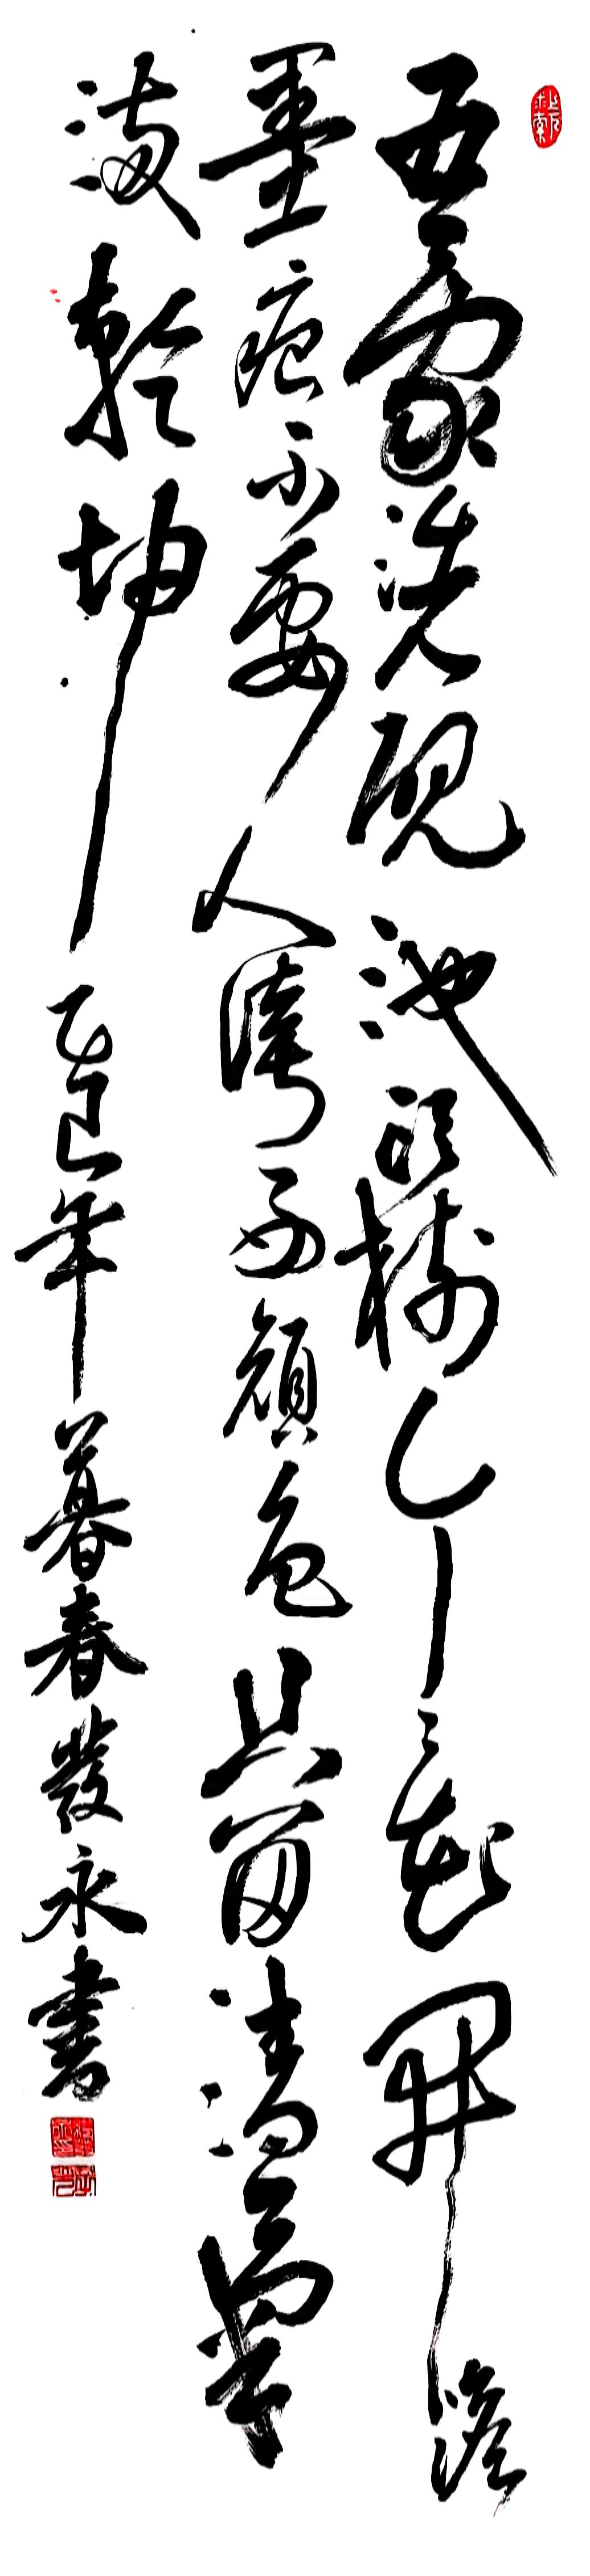 上下求索
吾家洗硯池頭樹个々花開澹
墨痕不要人誇好顏色只留清氣
滿乾坤 乙巳年暮春發永書